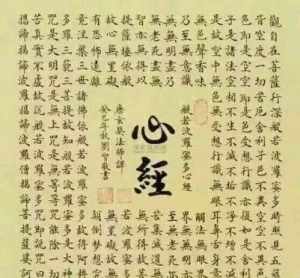 觀自在菩薩行深般若波羅蜜多時照見五
皆空度一切苦厄舍利子色不異空空不異
色即是空空即是色受想行識亦復如是舍利
子是諸法空相不生不滅不垢不淨不增不
是故空中無色無受想行識無眼耳鼻舌身意
無色聲香味觸法無眼
乃至無意識界無無明亦
無無明盡乃至無老死
無老死盡無苦集滅道
智亦無得以無所得故菩
提薩埵依般若波羅蜜
故心無罣礙無罣礙故無
有恐怖遠離顛倒夢想
般若波羅蜜多心經
心經
唐玄奘法師譯
癸巳年秋劉敬書
竟涅槃三世諸佛依般若波羅蜜多故得阿耨
多羅三藐三菩提故知般若波羅蜜多是大神
咒是大明咒是無上咒是無等等咒能除一切
苦真實不虛故說般若波羅蜜多咒即說咒
揭諦揭諦波羅揭諦波羅僧揭諦菩提薩婆